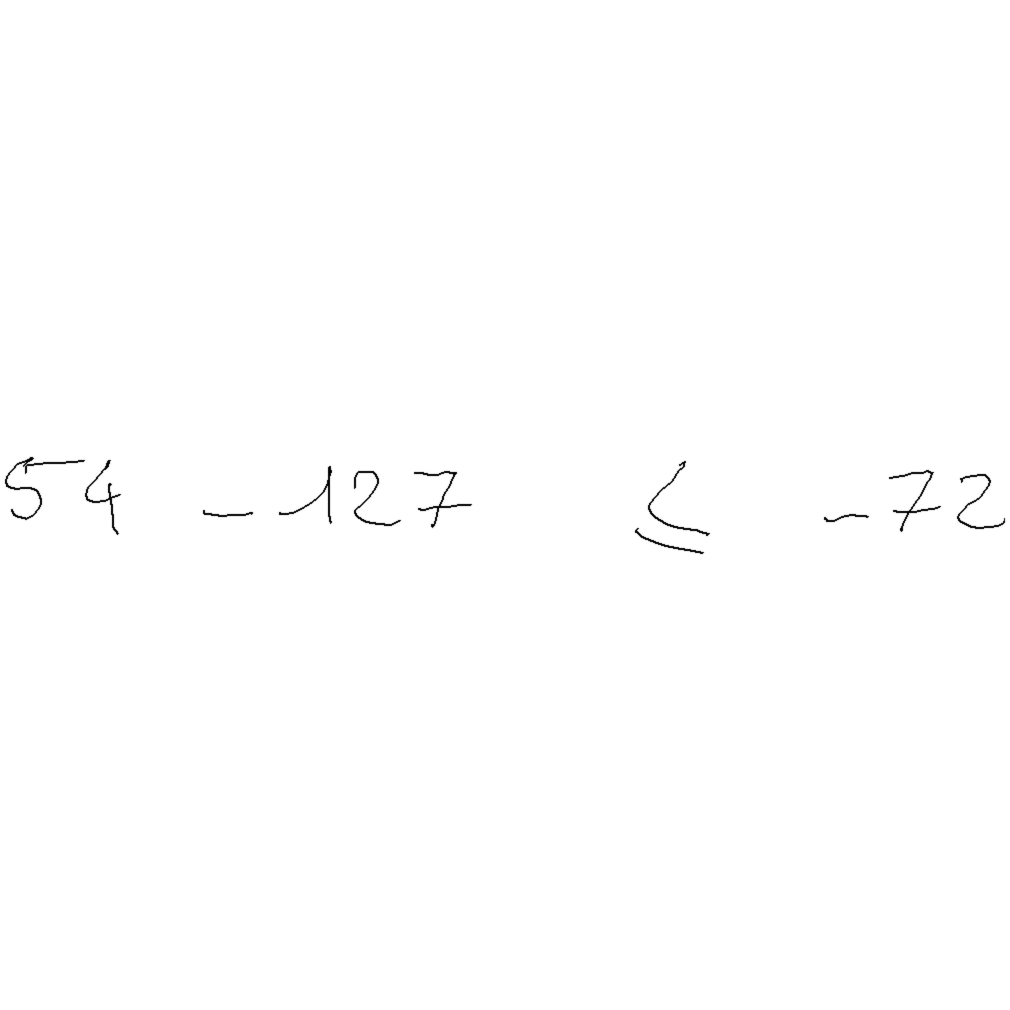 54 - 127 ≤ -72